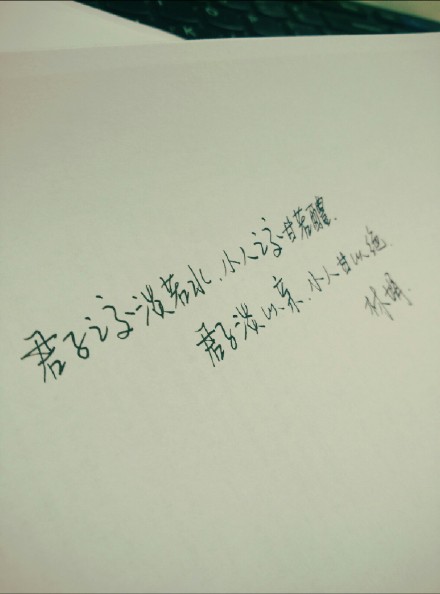 君子之交淡若水,小人之交甘若醴.
君子淡以亲,小人甘以绝.